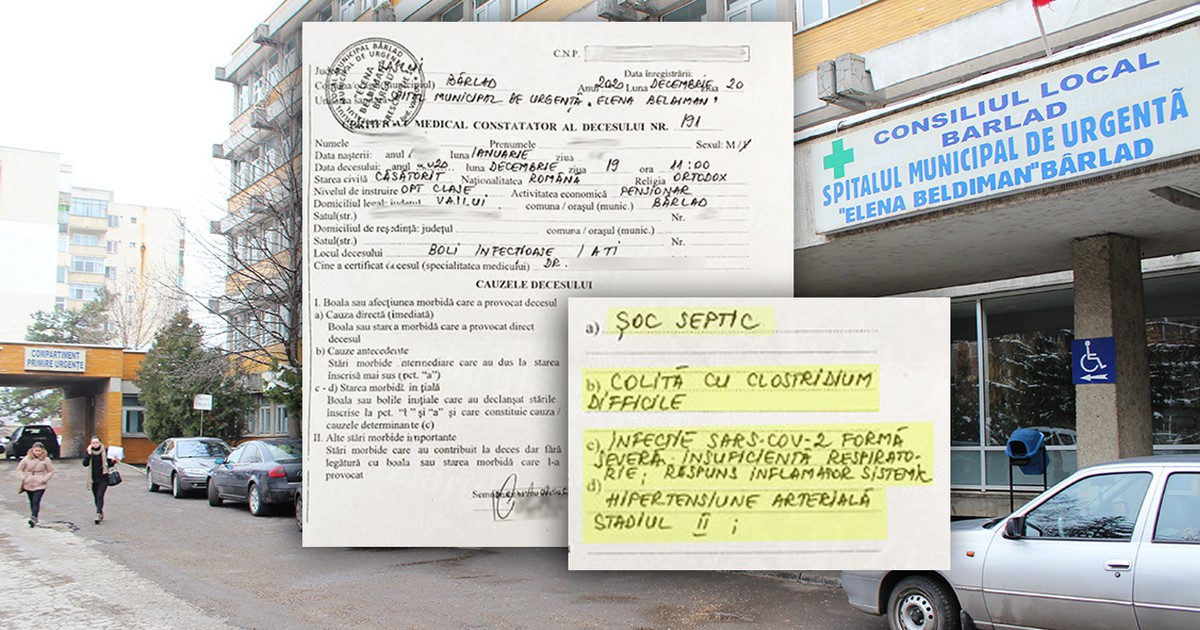 C.N.P.
MUNICIPAL BÂRLAD
Data înregistrării:
BÂRLAD Anul 2020 Luna DECEMBRIE Ziua 20
SPITAL MUNICIPAL DE URGENȚA "ELENA BELDIMAN"
CERTIFICAT MEDICAL CONSTATATOR AL DECESULUI NR. 191
Numele Prenumele Sexul: M/
Data nașterii: anul luna IANUARIE ziua
Data decesului: anul 2020 luna DECEMBRIE ziua 19 ora 11:00
Starea civilă CĂSĂTORIT Naționalitatea ROMÂNA Religia ORTODOX
Nivelul de instruire OPT CLASE Activitatea economică PENSIONAR
Domiciliul legal: județul VASLUI comuna / orașul (munic.) BÂRLAD
Satul(str.) Nr.
Domiciliul de reședință: județul comuna / orașul (munic.)
Satul(str.) Nr.
Locul decesului BOLI INFECȚIOASE / ATI
Cine a certificat decesul (specialitatea medicului) DR.
CAUZELE DECESULUI
I. Boala sau afecțiunea morbidă care a provocat decesul
a) Cauza directă (imediată)
Boala sau starea morbidă care a provocat direct
decesul
b) Cauze antecedente
Stări morbide intermediare care au dus la starea
înscrisă mai sus (pct. "a")
c - d) Starea morbidă inițială
Boala sau bolile inițiale care au declanșat stările
înscrise la pct. și "a" și care constituie cauza /
cauzele determinante (c)
II. Alte stări morbide importante
Stări morbide care au contribuit la deces dar fără
legătură cu boala sau starea morbidă care l-a
provocat
a) ȘOC SEPTIC
b) COLITĂ CU CLOSTRIDIUM
DIFFICILE
c) INFECȚIE SARS-COV-2 FORMĂ
SEVERĂ. INSUFICIENȚĂ RESPIRATO-
RIE; RĂSPUNS INFLAMATOR SISTEMIC
d) HIPERTENSIUNE ARTERIALĂ
STADIUL II ;
CONSILIUL LOCAL
BARLAD
SPITALUL MUNICIPAL DE URGENTĂ
"ELENA BELDIMAN" BÂRLAD
COMPARTIMENT
PRIMIRE URGENȚE